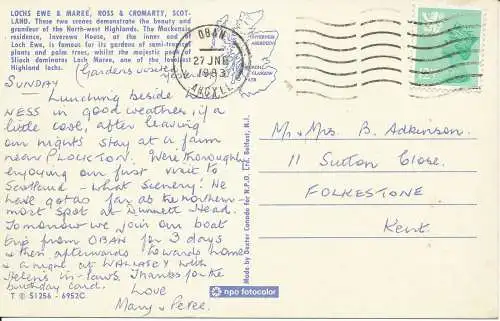 LOCHS EWE & MAREE, ROSS & CROMARTY, SCOT-
LAND. These two scenes demonstrate the beauty and
grandeur of the North-west Highlands. The Mackenzie
residence, Inverewe House, at the inner end of
Loch Ewe, is famous for its gardens of semi-tropical
plants and palm trees, whilst the majestic peak of
Slioch dominates Loch Maree, one of the loveliest
Highland lochs.
(Gardens visited
SUNDAY
Lunching beside
NESS in good weather, if a
little cool, after leaving
our nights stay at a farm
near PLOCKTON. Were thoroughly
enjoying our first visit to
Scotland - what scenery! We
have got as far as the northern-
most spot at Dunnett Head.
Tomorrow we join our boat
trip from OBAN for 3 days
& then afterwards towards home
& a night at WALLASEY with
Helen's in-laws. Thanks for the
birthday card.
Love
Mary & Peree.
T © S1256 - 6952C
OBAN
27 JNE
1983
ARGYLL
INVERNESS
ABERDEEN
GLASGOW
AYR
Made by Dexter Canada for N.P.O. Ltd. Belfast, N.I.
npo fotocolor
Mr & Mrs B. Adkinson.
11 Sutton Close.
FOLKESTONE
Kent.